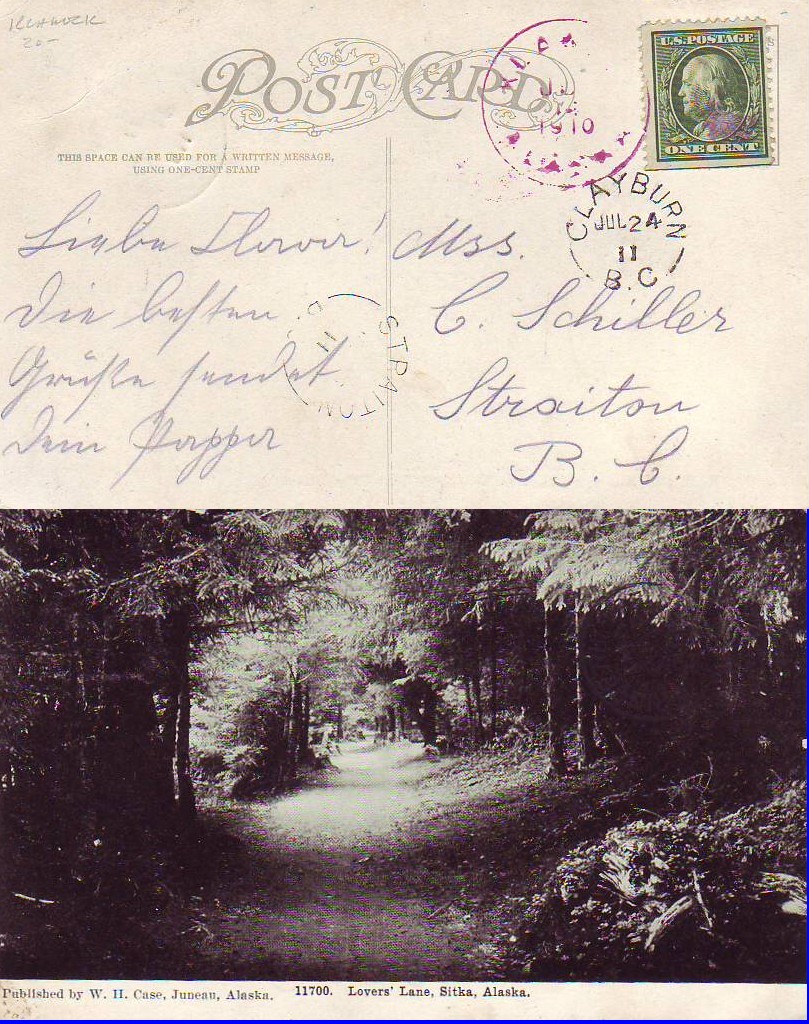 20-
POST CARD
1910
U.S. POSTAGE
ONE CENT
THIS SPACE CAN BE USED FOR A WRITTEN MESSAGE,
USING ONE-CENT STAMP
CLAYBURN
JUL 24
11
B.C
Liebe
Die besten
Grüße sendet
Dein Pappa
STRAITON
11
Mss.
C. Schiller
Straiton
B. C.
Published by W. H. Case, Juneau, Alaska.
11700. Lovers' Lane, Sitka, Alaska.